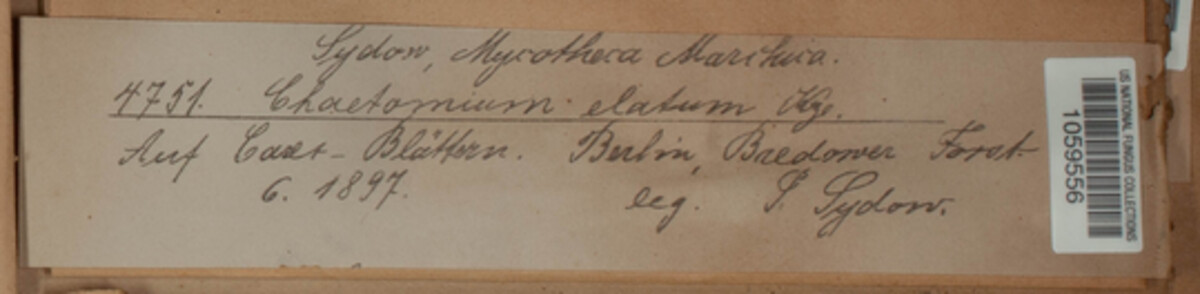 Sydow, Mycotheca Marchica.
4751. Chaetomium elatum Kze.
Auf Carex-Blättern. Berlin, Bredower Forst
6. 1897. leg. P. Sydow.
US NATIONAL FUNGUS COLLECTIONS
1059556